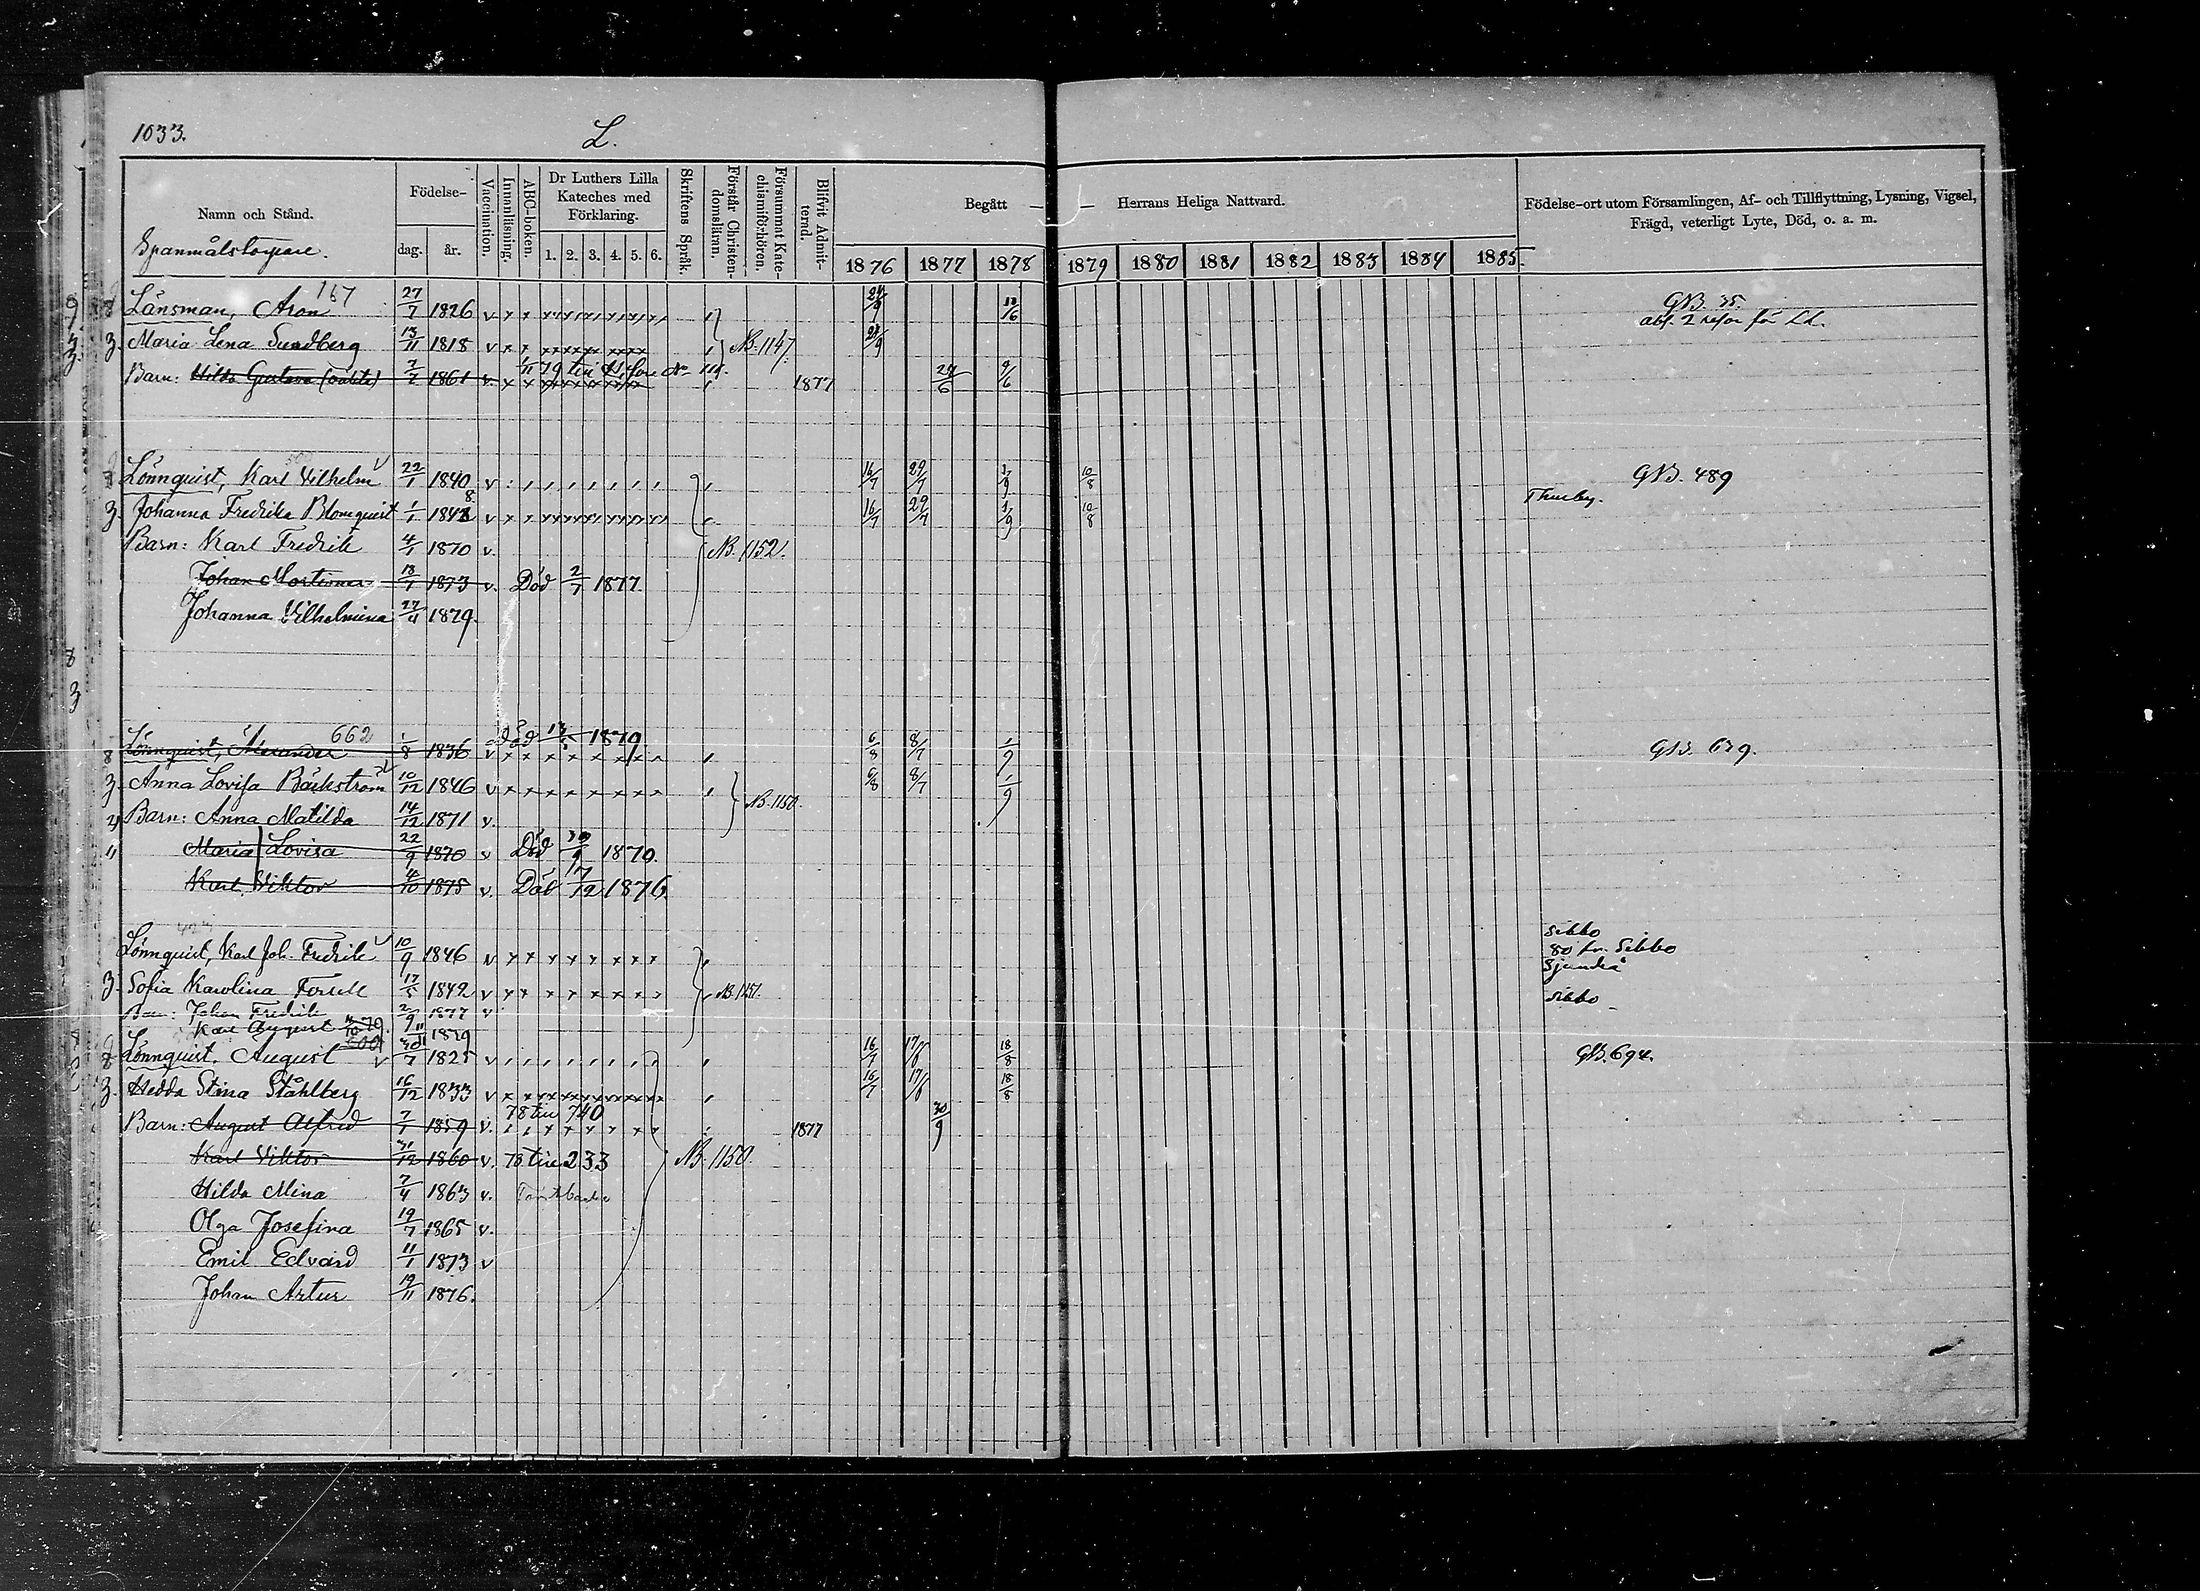 1033.
L.
Namn och Stånd.
Födelse-
dag. år.
Vaccination.
Innanläsning.
ABC-boken.
Dr Luthers Lilla Kateches med Förklaring.
1. 2. 3. 4. 5. 6.
Skriftens Språk.
Förstår Christendomsläran.
Försummat Katechismiförhören.
Blifvit Admitterad.
Begått Herrans Heliga Nattvard.
1876 1877 1878 1879 1880 1881 1882 1883 1884 1885.
Födelse-ort utom Församlingen, Af- och Tillflyttning, Lysning, Vigsel,
Frägd, veterligt Lyte, Död, o. a. m.
Spanmålstorpare.
167
8 Länsman, Aron 27/7 1826 v 13/6 GB. 35.
3. Maria Lena Sundberg 13/11 1818 v NB. 1147.
Barn: Hilda Gustava 1861 v. 1877
Lönnquist, Karl Vilhelm 22/1 1840 v 16/7 29/7 1/9 10/8 GB. 489
3. Johanna Fredrika Blomquist 1/1 v 16/7 29/7 1/9 10/8 Thusby.
Barn: Karl Fredrik 4/1 1870 v. NB. 1152.
Johan Mortimer 18/1 1873 v. Död 2/7 1877.
Johanna Vilhelmina 27/4 1879.
662
8 Lönnquist, Alexander 1/8 1836 v Död 1879 6/8 8/7 1/9 GB. 679.
3 Anna Lovisa Bäckström 10/12 1846 v 6/8 8/7 1/9
Barn: Anna Matilda 14/12 1871 v. NB. 1150.
" Maria Lovisa 22/9 1870 v Död 1870.
Karl Viktor 4/10 1875 v. Död 17/12 1876.
Lönnquist, Karl Joh. Fredrik 10/9 1846 v Sibbo
80 fr. Sibbo
Sjundeå
3. Sofia Karolina Forsell 17/5 1842 v NB. 1151. Sibbo
Barn: Johan Fredrik 2/9 1877 v
Karl August 1879
Lönnquist, August 1825 v 16/7 17/6 18/8 GB. 694.
3. Hedda Stina Ståhlberg 16/12 1833 v 16/7 17/6 18/8
78 till 740
Barn: August Alfred 7/1 1859 v. 1877 30/9
Karl Viktor 31/12 1860 v. 78 till 233 NB. 1150.
Hilda Mina 7/4 1863 v.
Olga Josefina 19/7 1865 v.
Emil Edvard 11/1 1873 v
Johan Artur 19/11 1876.